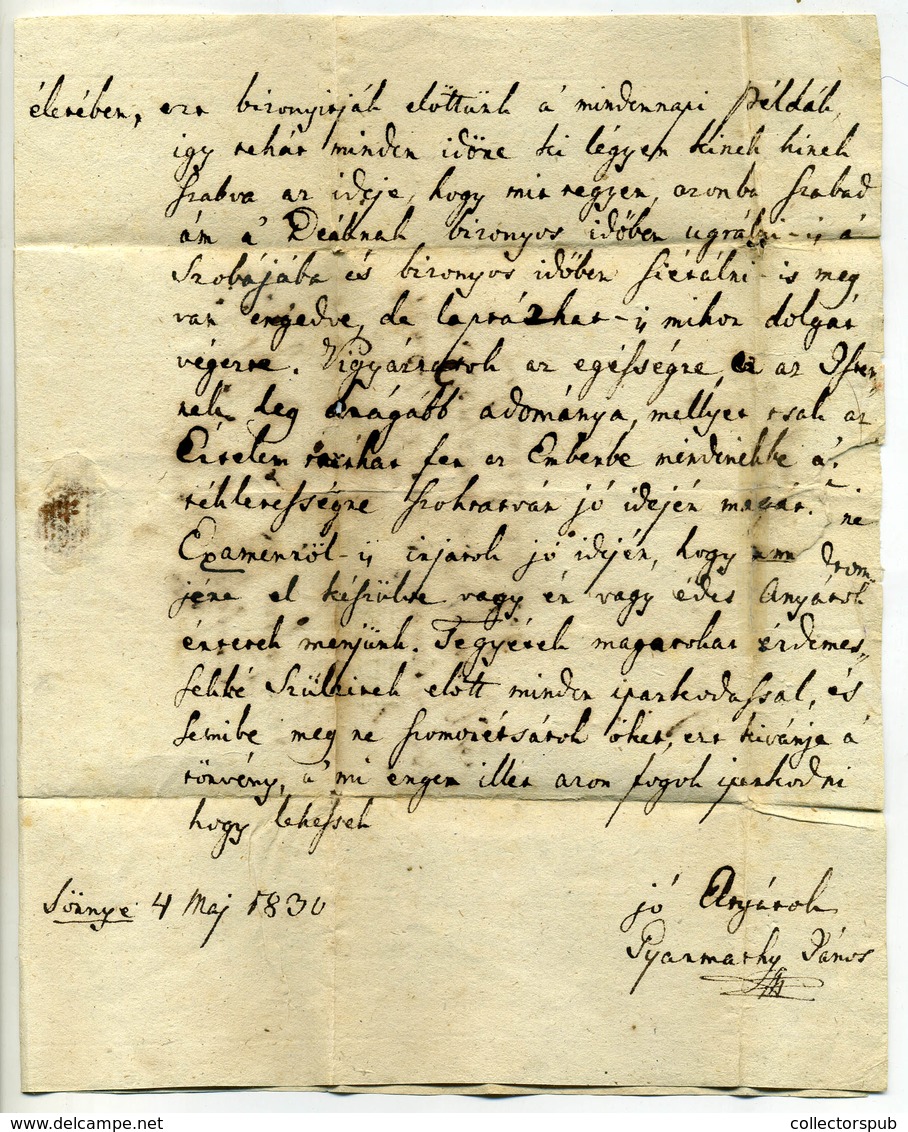 életében, ezt bizonyitják elöttünk á mindennapi Példák,
igy tehát minden idöre ki légyen kinek kinek
szabva az ideje, hogy mit tegyen, azonba szabad
ám á Deáknak bizonyos időben ugrálni-is á
Szobájába és bizonyos időben siétálni-is meg
van engedve, de laptázhat-is mikor dolgát
végezte. Vigyázzatok az egésségre, ez az Isten-
nek leg drágább adománya, mellyet csak az
Értelem tarthat fen az Emberbe mindinkább á
tökletességre szoktatván jó idején magát.
Examenröl-is irjatok jó idején, hogy ne
jére el készülve vagy én vagy édes Anyátok
értetek menjünk. Tegyétek magatokat érdemes-
sekké Szüleitek elött minden iparkodással, és
semibe meg ne szomorétsátok öket, ezt kivánja á
törvény, á mi engem illet azon fogok iparkodni
hogy lehessek
Sönnye 4 Maj 1830
jó Atyátok
Gyarmathy János
collectorspub